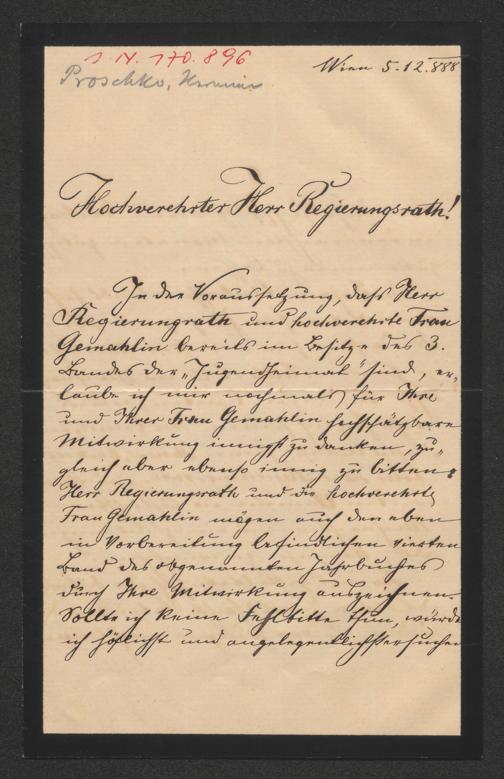 J. N. 170.896
Proschko, Hermine
Wien 5.12.888
Hochverehrter Herr Regierungsrath!
In der Voraussetzung, daß Herr
Regierungsrath und hochverehrte Frau
Gemahlin bereits im Besitze des 3.
Bandes der „Jugendheimat" sind, er-
laube ich mir nochmals für Ihre
und Ihrer Frau Gemahlin hochschätzbare
Mitwirkung innigst zu danken, zu-
gleich aber ebenso innig zu bitten:
Herr Regierungsrath und die hochverehrte
Frau Gemahlin mögen auch den eben
in Vorbereitung befindlichen vierten
Band des obgenannten Jahrbuches
durch Ihre Mitwirkung auszeichnen.
Sollte ich keine Fehlbitte thun, würde
ich höflichst und angelegentlichst ersuchen